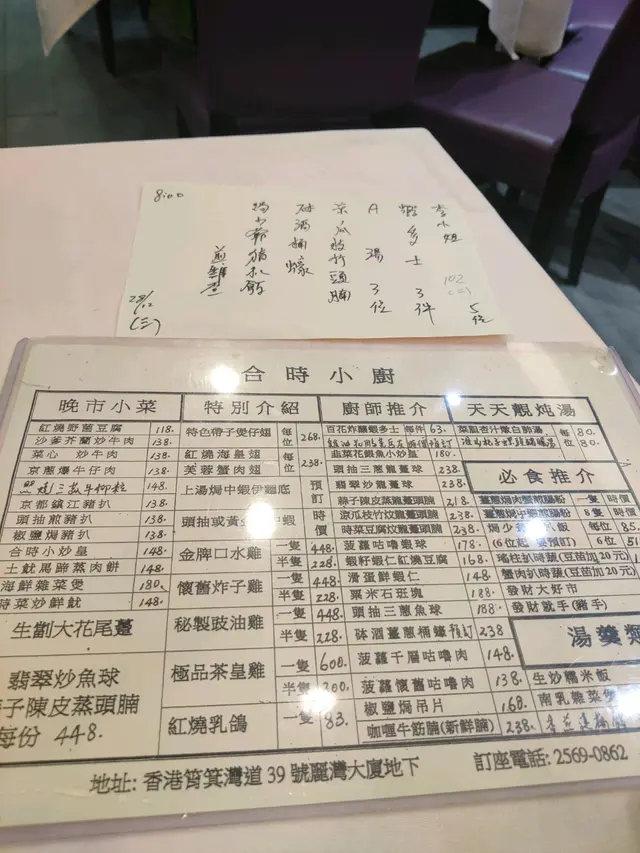 8:00
李小姐 5位
蝦多士 3件
A 湯 3位
28/12
(三)
合時小廚
晚市小菜
紅燒野菌豆腐 118.
沙爹芥蘭炒牛肉 138.
菜心 炒牛肉 138.
京蔥爆牛仔肉 138.
148.
京都鎮江豬扒 138.
頭抽煎豬扒 138.
椒鹽焗豬扒 138.
合時小炒皇 148.
土魷馬蹄蒸肉餅 148.
海鮮雜菜煲 180.
時菜炒鮮魷 148.
生劏大花尾躉
翡翠炒魚球
陳皮蒸頭腩
每份 448.
特別介紹
特色帶子燴仔翅 每位 268.
紅燒海皇翅
芙蓉蟹肉翅 每位 238.
上湯焗中蝦伊麵底 預訂
頭抽或黃金 中蝦 時價
金牌口水雞 一隻 448. 半隻 228.
懷舊炸子雞 一隻 448. 半隻 228.
秘製豉油雞 一隻 448. 半隻 228.
極品茶皇雞 一隻 600. 半隻 300.
紅燒乳鴿 一隻 83.
廚師推介
百花炸釀蝦多士 每件 63.
韮菜花銀魚小炒皇 180.
頭抽三蔥龍躉球 238.
翡翠炒龍躉球 238.
辣子陳皮蒸龍躉頭腩 218.
涼瓜枝竹炆龍躉頭腩 238.
時菜豆腐炆龍躉頭腩 238.
菠蘿咕嚕蝦球 178.
蝦籽蝦仁紅燒豆腐 168.
滑蛋鮮蝦仁 148.
粟米石斑塊 188.
頭抽三蔥魚球 188.
砵酒薑蔥桶蠔 預訂 238
菠蘿千層咕嚕肉 148.
菠蘿懷舊咕嚕肉 138.
椒鹽焗吊片 168.
咖喱牛筋腩(新鮮腩) 238.
天天靚炖湯
菜膽杏汁燉白肺湯 每位 80.
每位 80.
必食推介
一隻 時價
8隻 時價
每位 85.
(6位起 預訂) 6位 51
瑤柱扒時蔬(豆苗加20元)
蟹肉扒時蔬(豆苗加20元)
發財大好市
發財就手(豬手)
湯羹類
生炒糯米飯
南乳雜菜煲
地址: 香港筲箕灣道 39 號麗灣大廈地下
訂座電話: 2569-0862